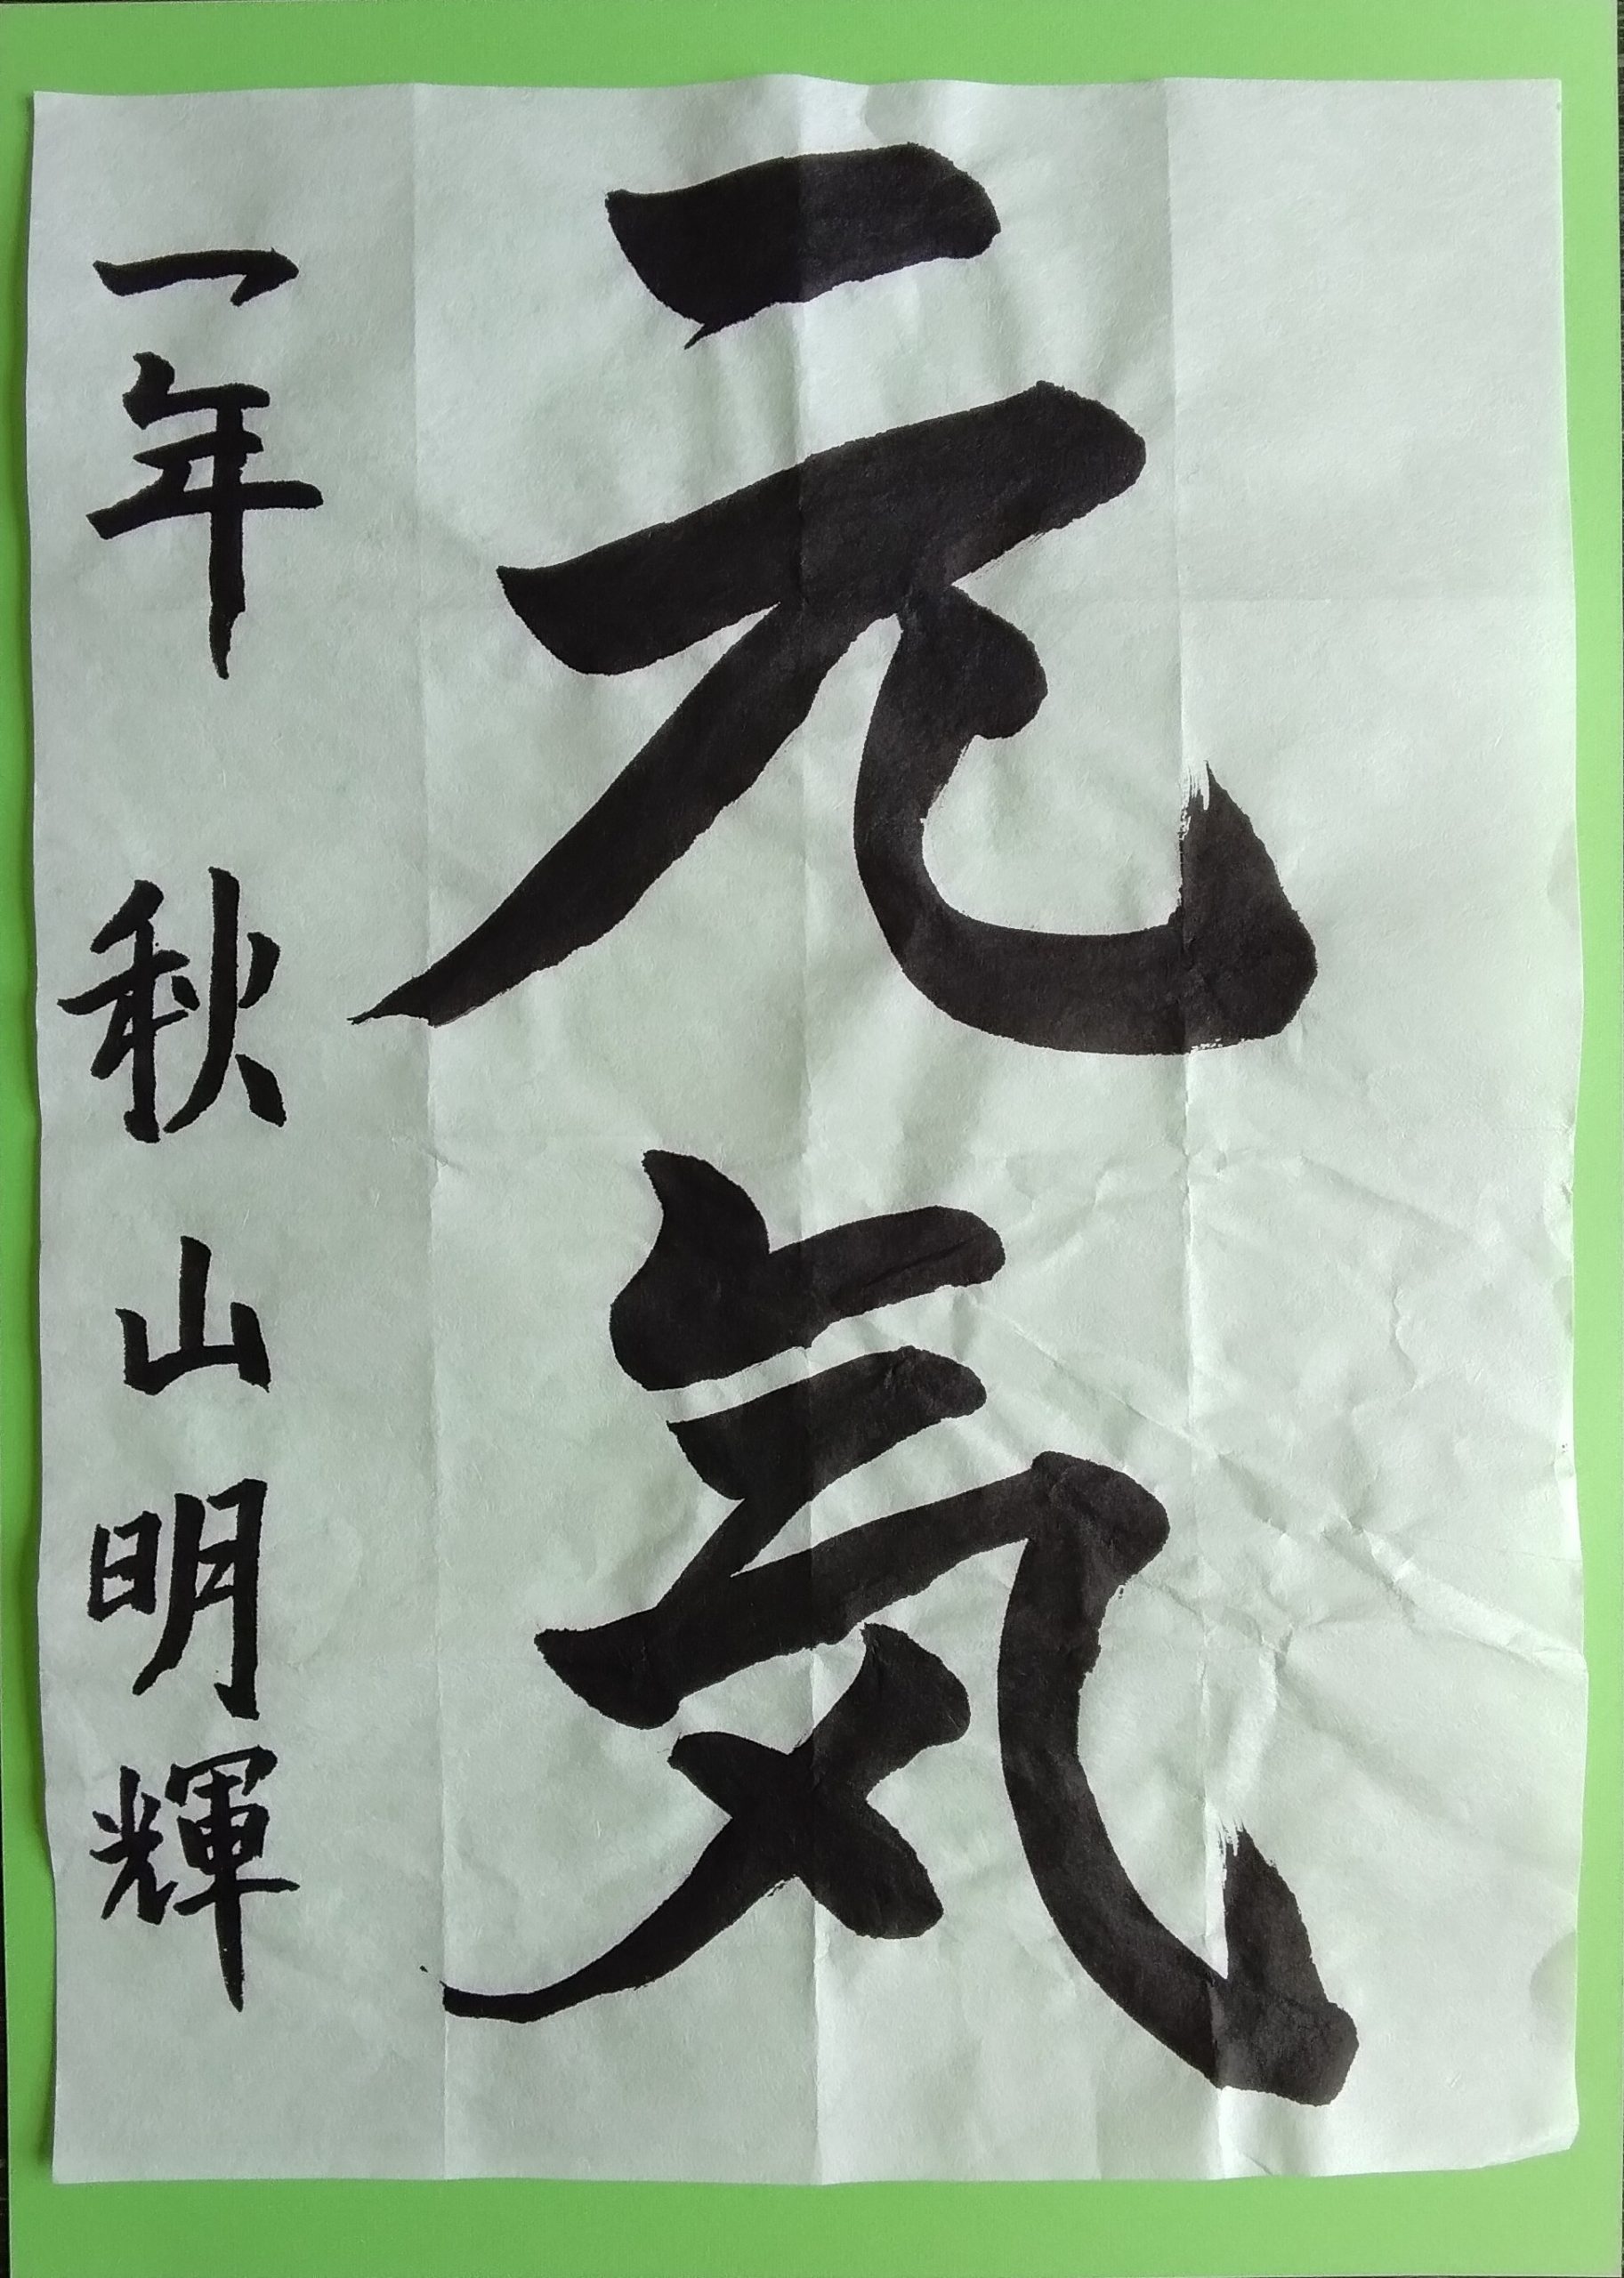 元気
一年 秋山明輝